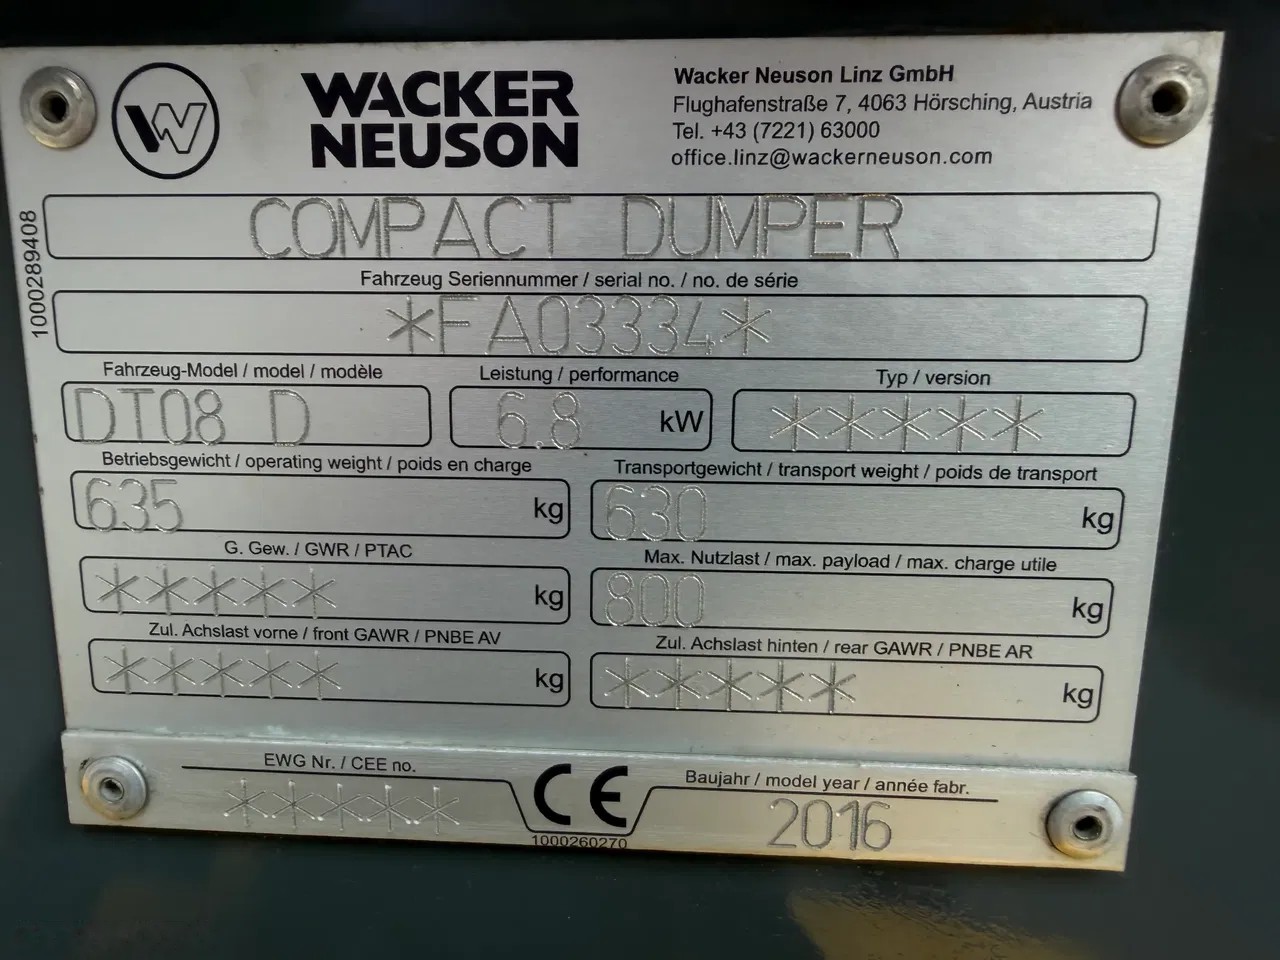 W
WACKER
NEUSON
Wacker Neuson Linz GmbH
Flughafenstraße 7, 4063 Hörsching, Austria
Tel. +43 (7221) 63000
office.linz@wackerneuson.com
1000289408
COMPACT DUMPER
Fahrzeug Seriennummer / serial no. / no. de série
*FA03334*
Fahrzeug-Model / model / modèle
DT08 D
Leistung / performance
6.8 kW
Typ / version
*****
Betriebsgewicht / operating weight / poids en charge
635 kg
Transportgewicht / transport weight / poids de transport
630 kg
G. Gew. / GWR / PTAC
***** kg
Max. Nutzlast / max. payload / max. charge utile
800 kg
Zul. Achslast vorne / front GAWR / PNBE AV
***** kg
Zul. Achslast hinten / rear GAWR / PNBE AR
***** kg
EWG Nr. / CEE no.
*****
CE
1000260270
Baujahr / model year / année fabr.
2016